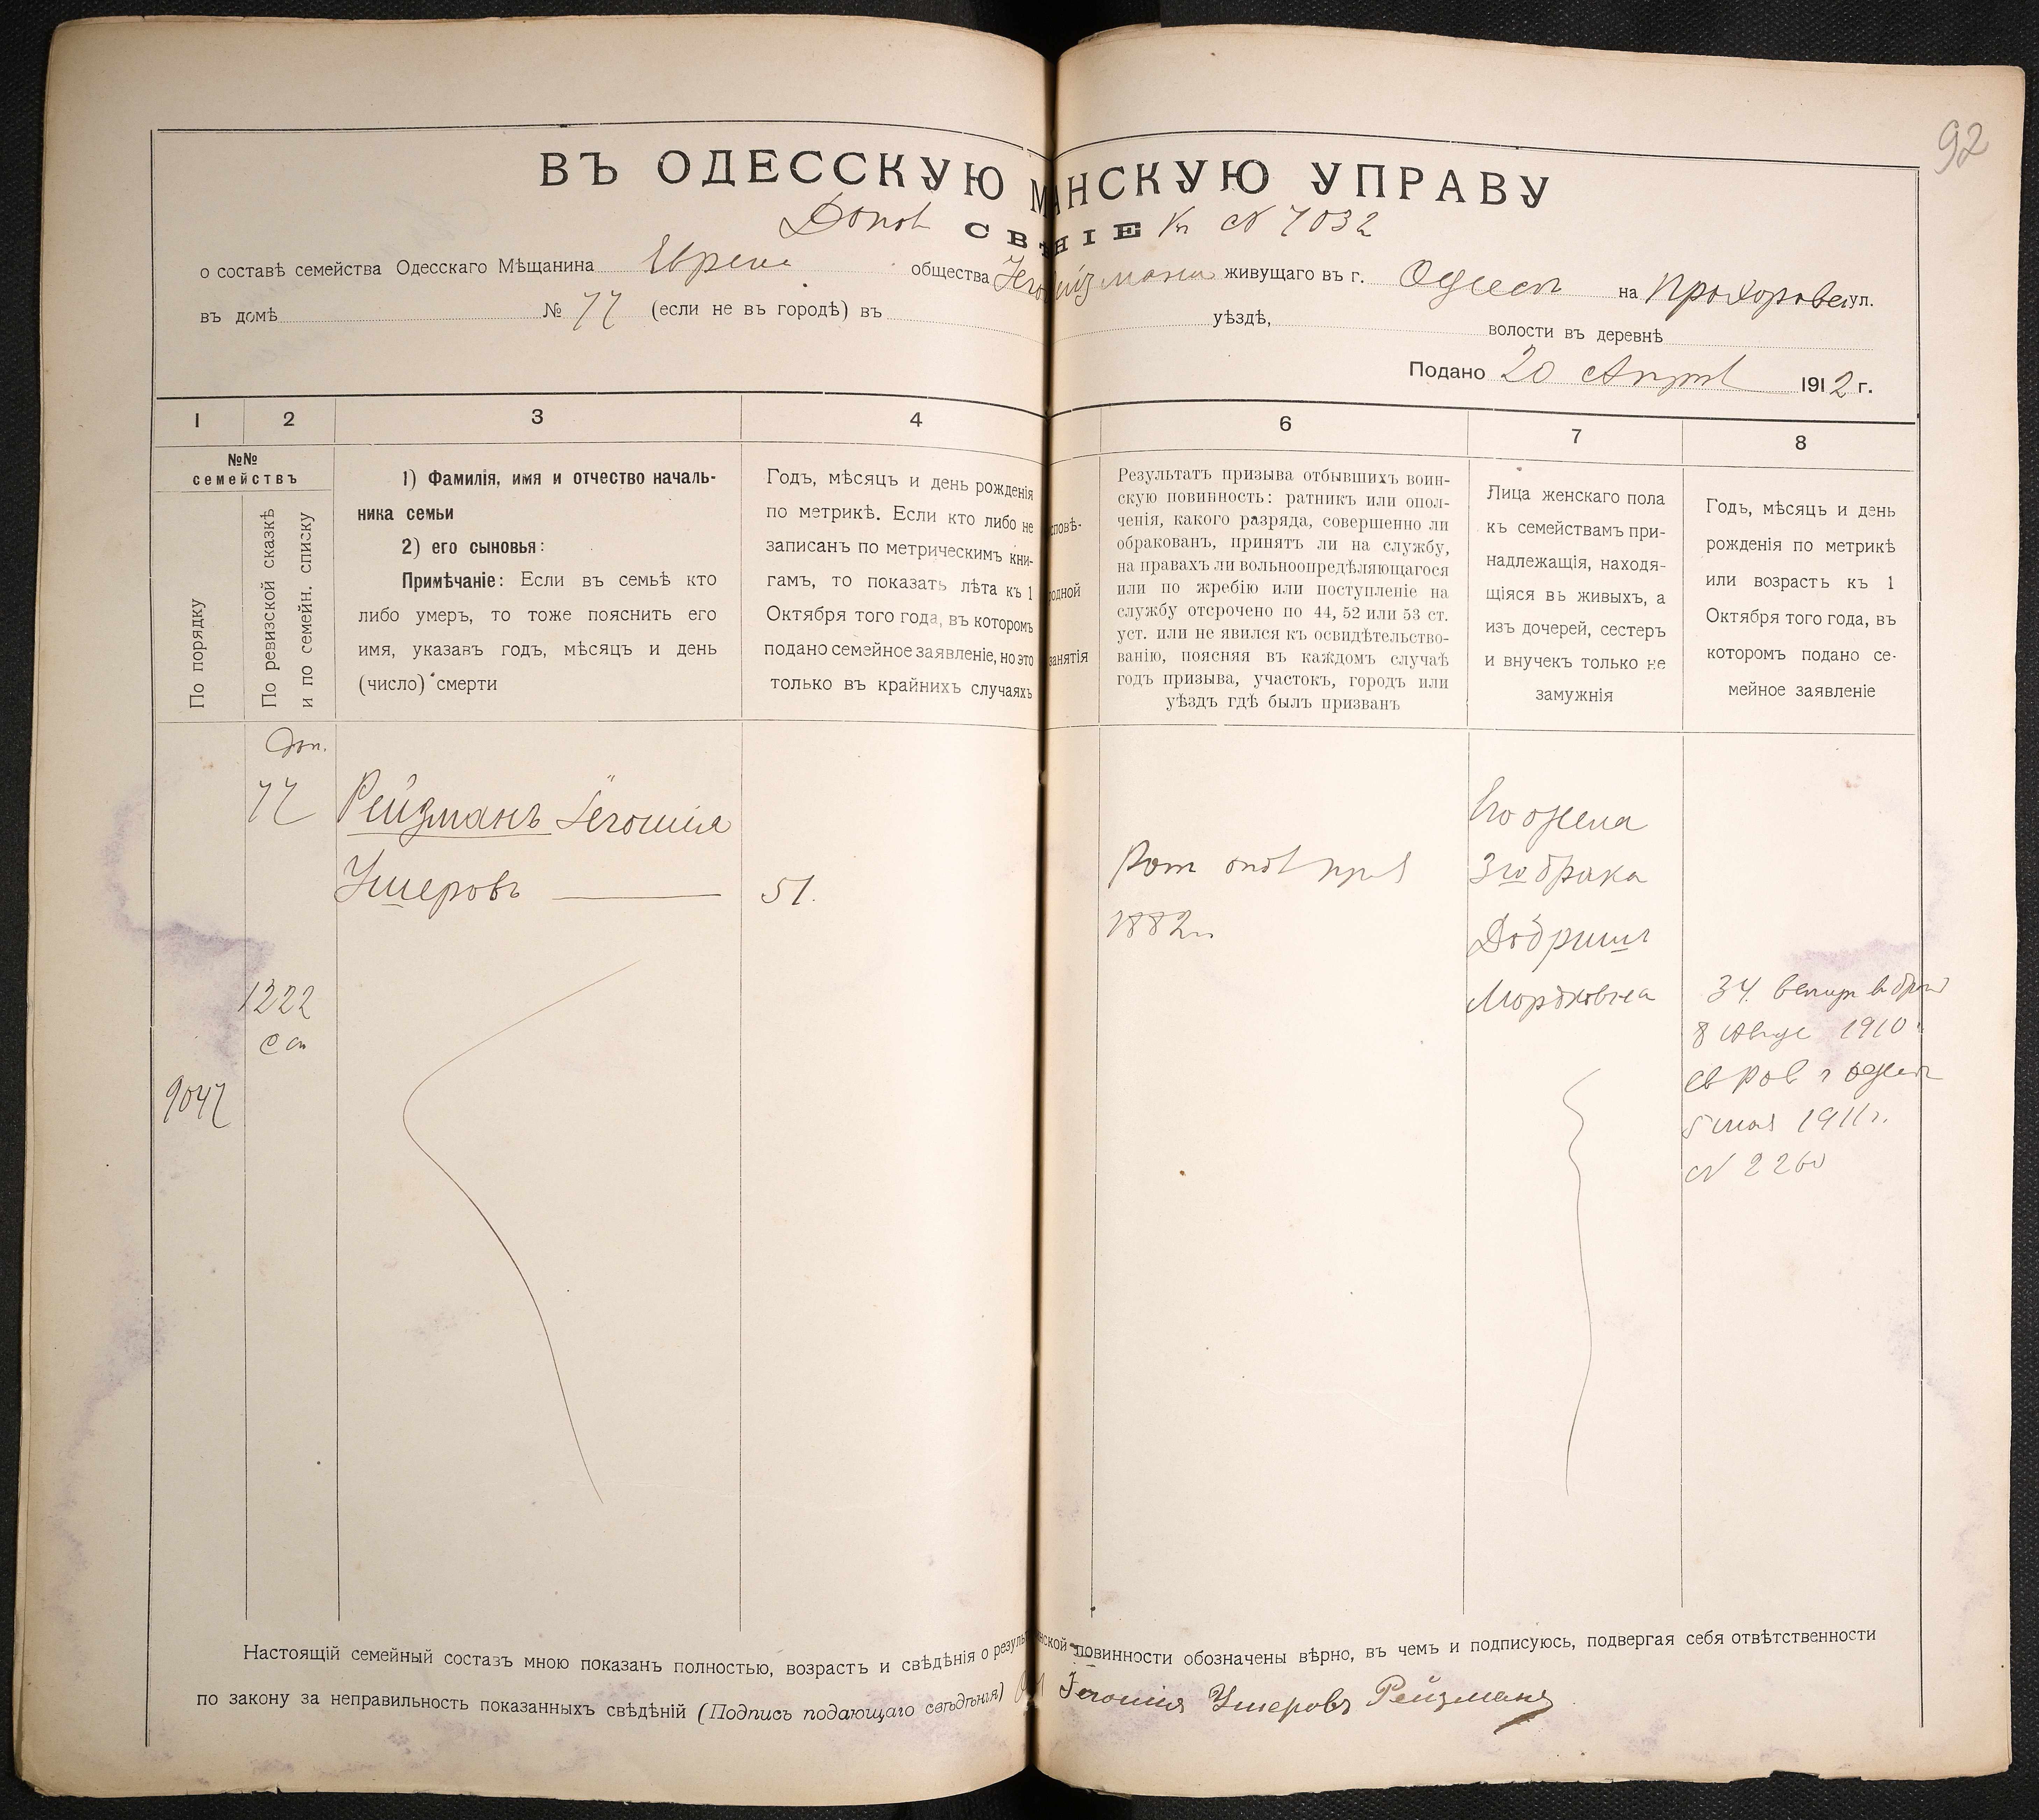 92
ВЪ ОДЕССКУЮ М АНСКУЮ УПРАВУ
Допол СВѢ НІЕ Къ № 7032
о составѣ семейства Одесскаго Мѣщанина Еврейс общества живущаго въ г. Одессѣ на Прохоровс ул.
въ домѣ № 77 (если не въ городѣ) въ уѣздѣ, волости въ деревнѣ
Подано 20 Апрѣл 1912 г.
1 2 3 4 6 7 8
№№ семействъ
По порядку
По ревизской сказкѣ и по семейн. списку
1) Фамилія, имя и отчество началь-
ника семьи
2) его сыновья:
Примѣчаніе: Если въ семьѣ кто
либо умеръ, то тоже пояснить его
имя, указавъ годъ, мѣсяцъ и день
(число) смерти
Годъ, мѣсяцъ и день рожденія
по метрикѣ. Если кто либо не
записанъ по метрическимъ кни-
гамъ, то показать лѣта къ 1
Октября того года, въ которомъ
подано семейное заявленіе, но это
только въ крайнихъ случаяхъ
сповѣ-
одной
занятія
Результатъ призыва отбывшихъ воин-
скую повинность: ратникъ или опол-
ченія, какого разряда, совершенно ли
обракованъ, принятъ ли на службу,
на правахъ ли вольноопредѣляющагося
или по жребію или поступленіе на
службу отсрочено по 44, 52 или 53 ст.
уст. или не явился къ освидѣтельство-
ванію, поясняя въ каждомъ случаѣ
годъ призыва, участокъ, городъ или
уѣздъ гдѣ былъ призванъ
Лица женскаго пола
къ семействамъ при-
надлежащія, находя-
щіяся въ живыхъ, а
изъ дочерей, сестеръ
и внучекъ только не
замужнія
Годъ, мѣсяцъ и день
рожденія по метрикѣ
или возрастъ къ 1
Октября того года, въ
которомъ подано се-
мейное заявленіе
Доп.
77
1222
сп
9047
Рейзманъ Іегошія
Ушеровъ
51.
Рат опол
1882 г.
Его жена
3го брака
Добриш
Мордковна
34. вступ в брак
8 Авгус 1910
св Рав г Одесс
5 мая 1911 г.
№ 2260
Настоящій семейный составъ мною показанъ полностью, возрастъ и свѣдѣнія о резуль нской повинности обозначены вѣрно, въ чемъ и подписуюсь, подвергая себя отвѣтственности
по закону за неправильность показанныхъ свѣдѣній (Подпись подающаго свѣдѣнія) Іегошія Ушеровъ Рейзманъ